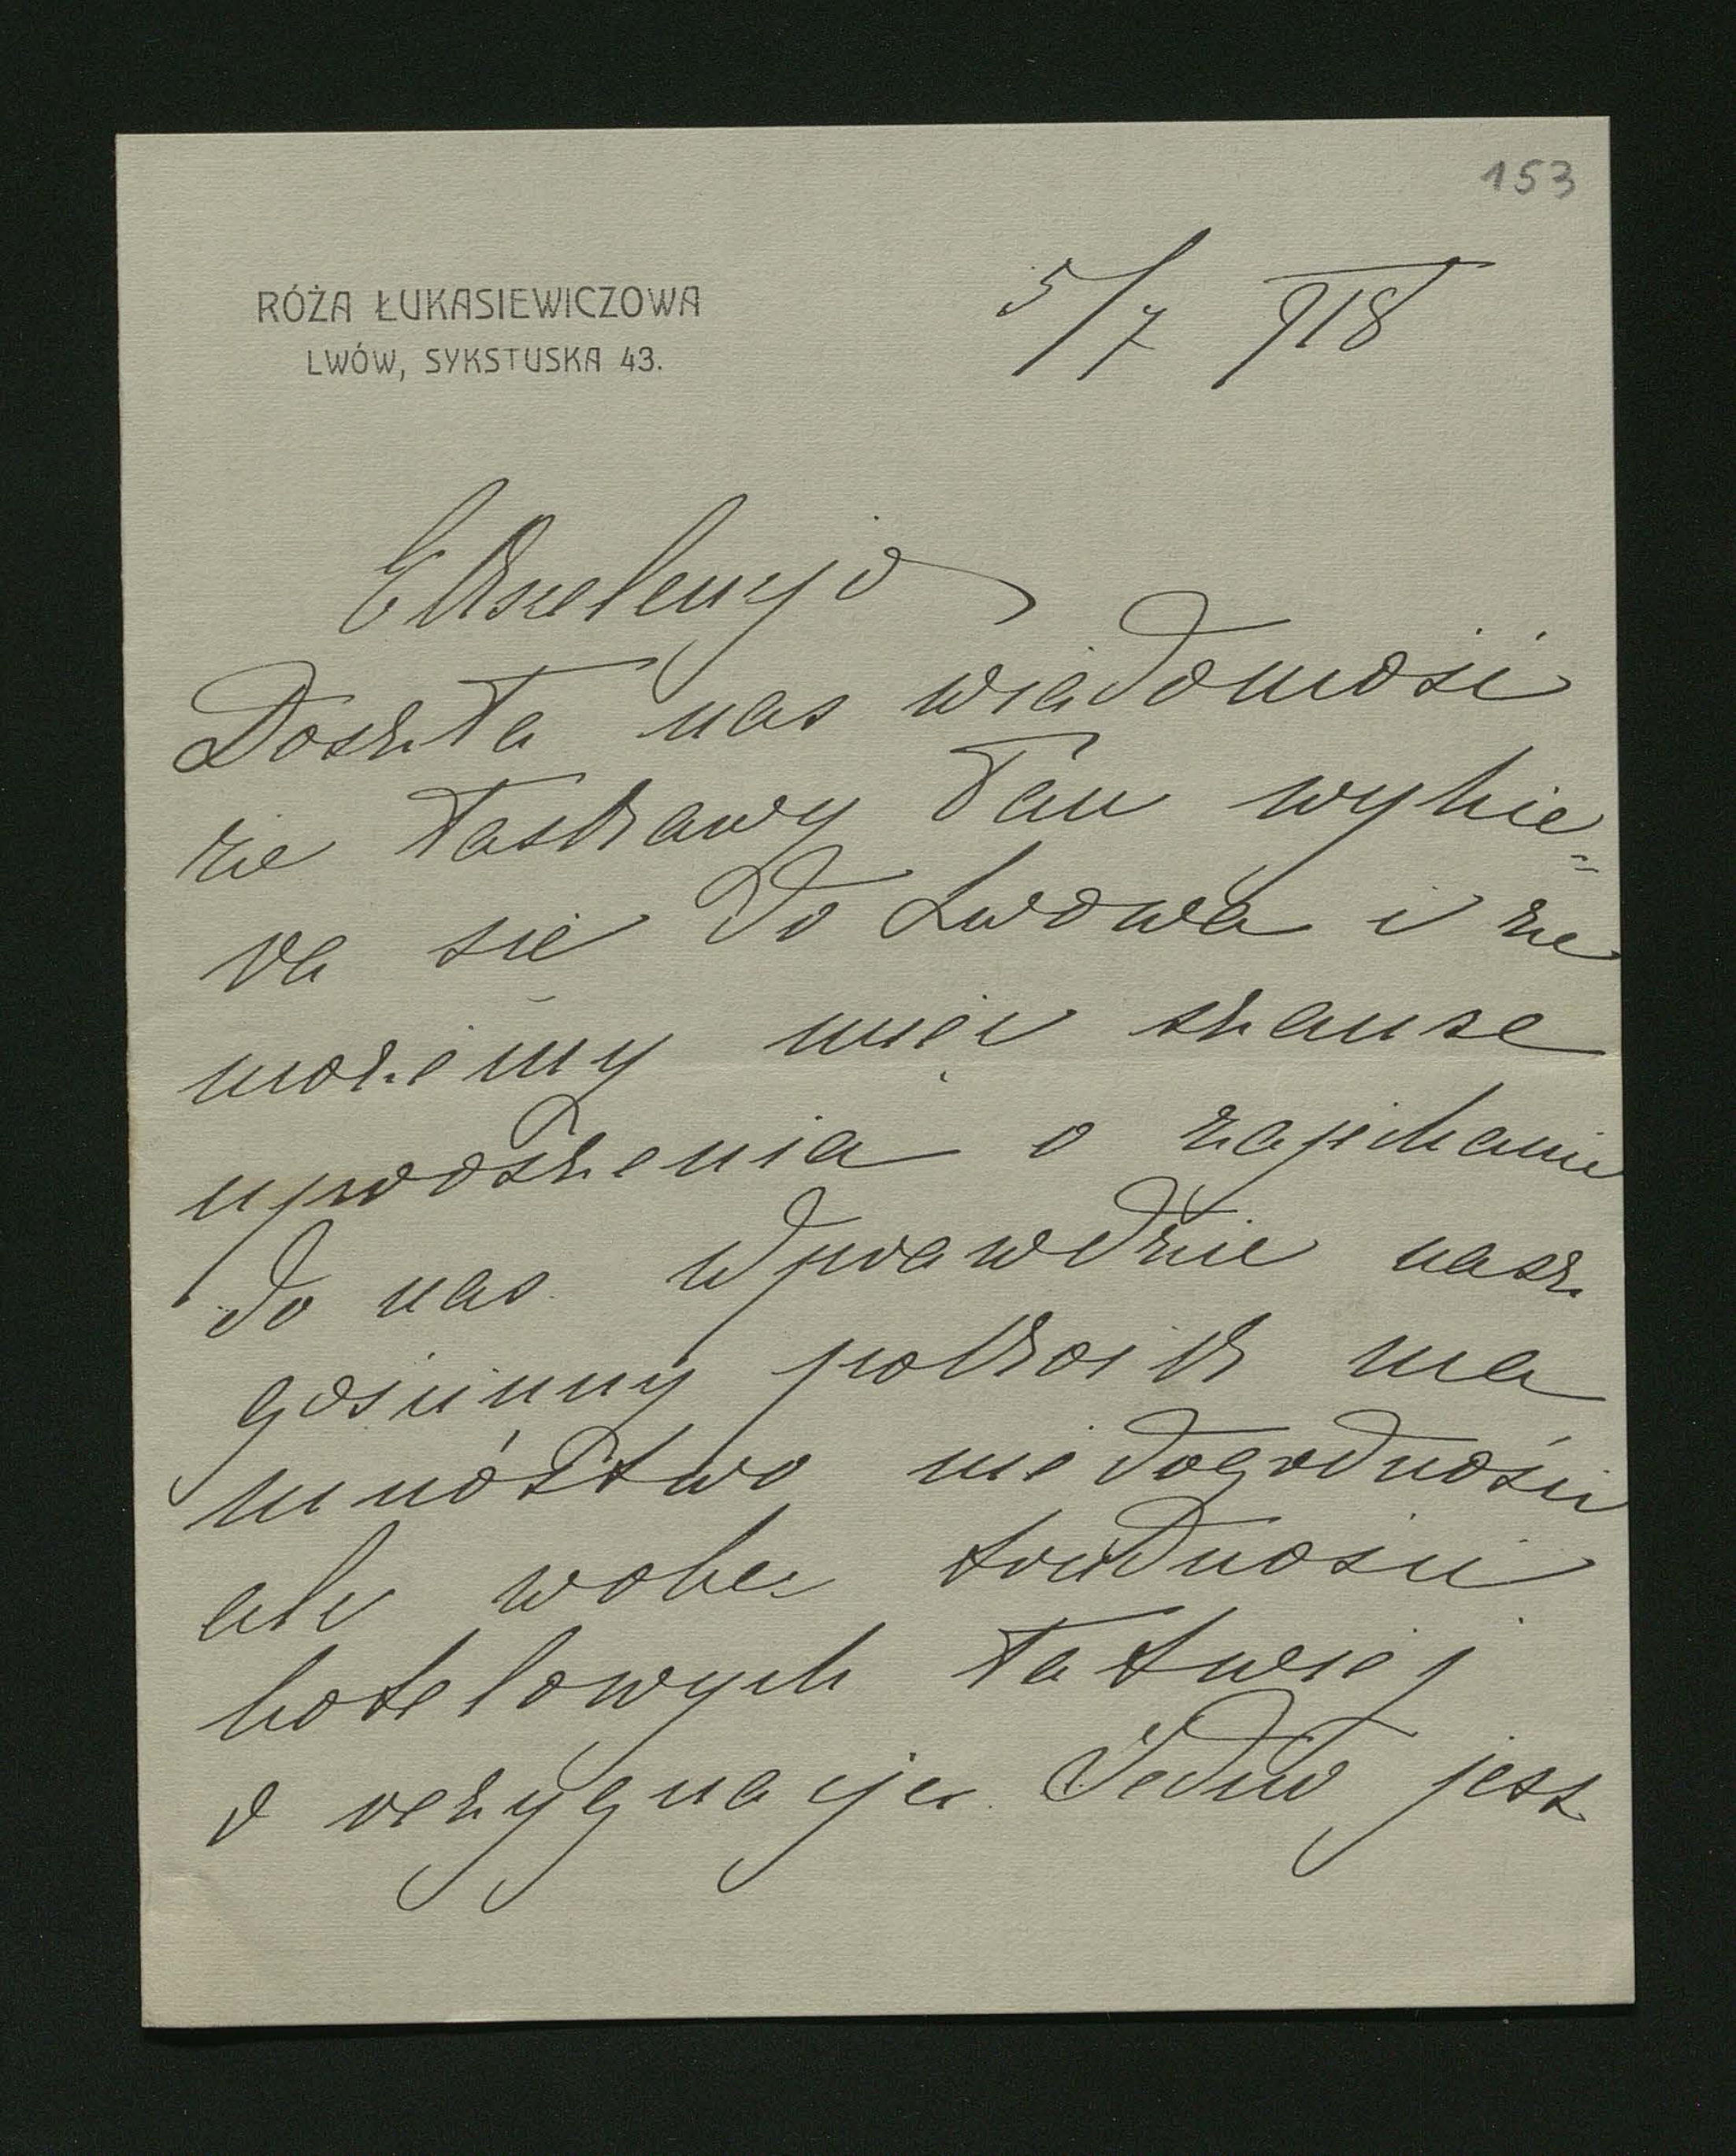 153
RÓŻA ŁUKASIEWICZOWA
LWÓW, SYKSTUSKA 43.
5/7 918
Ekscelencjo
Doszła nas wiadomość
że łaskawy Pan wybie=
ra się do Lwowa i że
możemy mieć szanse
uproszenia o zajechanie
do nas. Wprawdzie nasz
gościnny pokoik ma
mnóstwo niedogodności
ale wobec trudności
hotelowych łatwiej
o rezygnacje. Jedno jest